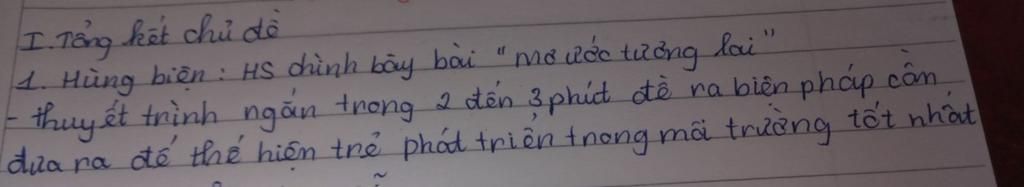 I. Tổng kết chủ đề
1. Hùng biện : HS chình bày bài "mơ ước tương lai"
- thuyết trình ngắn trong 2 đến 3 phút đề ra biện pháp cần
đưa ra để thể hiện trẻ phát triển trong môi trường tốt nhất